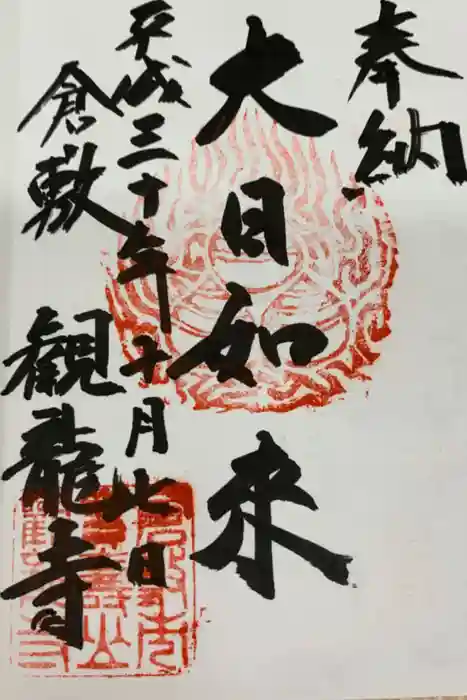 奉納
大日如来
平成三十年十月廿日
倉敷
観龍寺